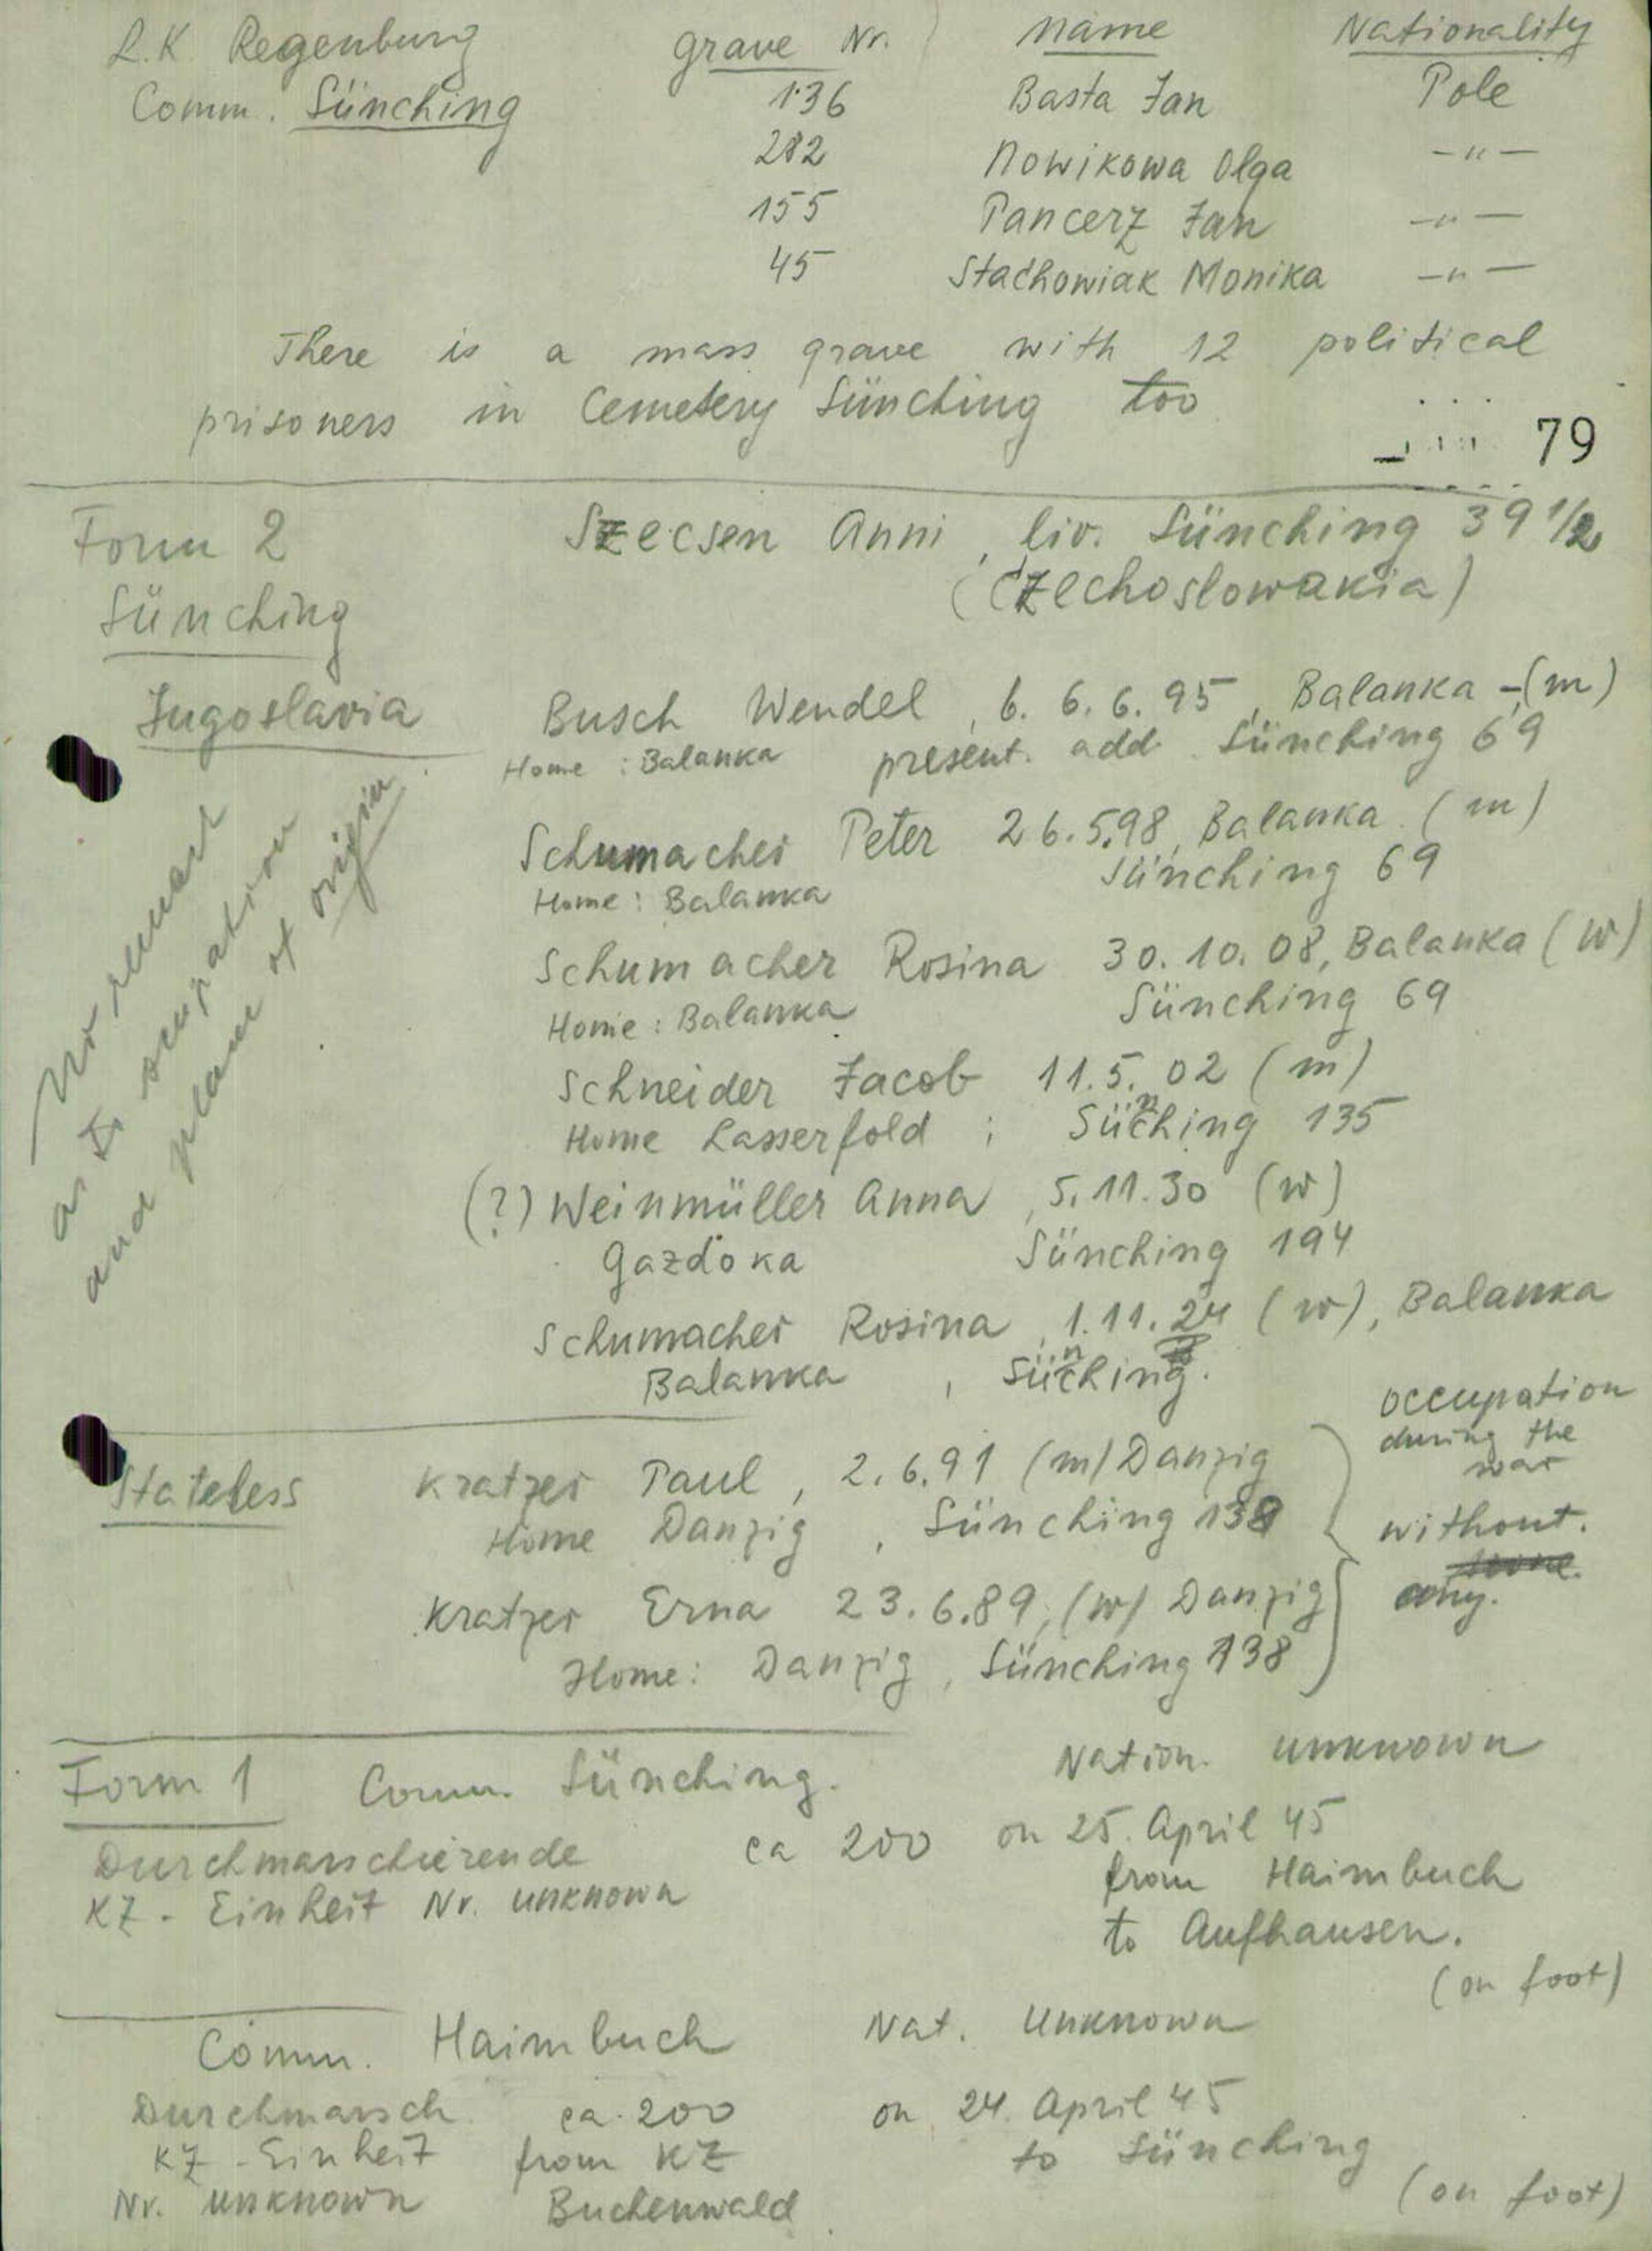 L.K Regenburg grave Nr. Name Nationality
Comm. Sünching 136 Basta Jan Pole
282 Nowikowa Olga -"-
155 Pancerz Jan -"-
45 Stachowiak Monika -"-
There is a mass grave with 12 political
prisoners in Cemetery Sünching too
79
Form 2 Szecsen Anni, liv. Sünching 39 1/2
Sünching (Czechoslowakia)
Jugoslavia Busch Wendel, 6. 6. 6. 95, Balanka - (m)
Home : Balanka present. add. Sünching 69
Schumacher Peter 26.5.98, Balanka (m)
Home : Balanka Sünching 69
Schumacher Rosina 30. 10. 08, Balanka (w)
Home : Balanka Sünching 69
Schneider Jacob 11.5. 02 (m)
Home Lasserfold ; Sünching 135
(?) Weinmüller Anna, 5.11.30 (w)
Gazdoka Sünching 194
Schumacher Rosina, 1.11.24 (w), Balanka
Balanka, Sünching.
No remark
as to occupation
and place of origin
Stateless Kratzer Paul, 2.6.91 (m) Danzig
Home Danzig, Sünching 138
Kratzer Erna 23.6.89, (w) Danzig
Home: Danzig, Sünching 138
occupation
during the
war
without.
any.
Form 1 Comm. Sünching. Nation. unknown
Durchmarschierende ca 200 on 25. April 45
KZ - Einheit Nr. unknown from Haimbuch
to Aufhausen.
(on foot)
Comm. Haimbuch Nat. unknown
Durchmarsch ca. 200 on 24. April 45
KZ - Einheit from KZ to Sünching
Nr. unknown Buchenwald (on foot)